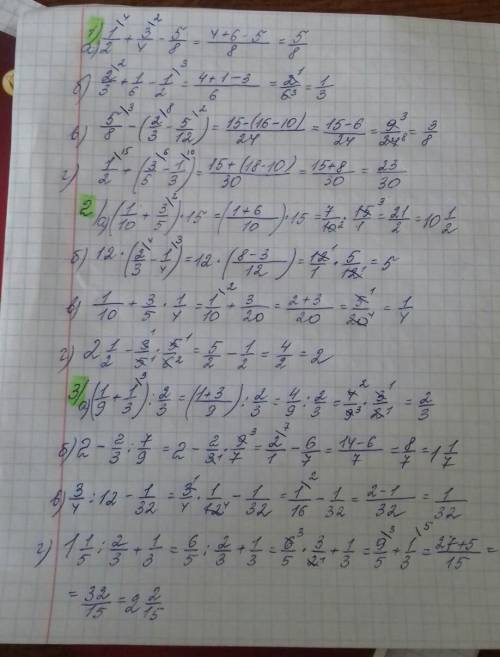 1) а) 1/2 \4 + 3/4 \2 - 5/8 = (4+6-5)/8 = 5/8
б) 2/3 \2 + 1/6 - 1/2 \3 = (4+1-3)/6 = 2 1/6 3 = 1/3
в) 5/8 \3 - (2/3 \8 - 5/12 \2) = (15-(16-10))/24 = (15-6)/24 = 9 3/24 8 = 3/8
г) 1/2 \15 + (3/5 \6 - 1/3 \10) = (15+(18-10))/30 = (15+8)/30 = 23/30
2) а) (1/10 + 3/5 \2) · 15 = ((1+6)/10) · 15 = 7/10 2 · 15 3/1 = 21/2 = 10 1/2
б) 12 · (2/3 \4 - 1/4 \3) = 12 · ((8-3)/12) = 12 1/1 · 5/12 1 = 5
в) 1/10 + 3/5 · 1/4 = 1/10 \2 + 3/20 = (2+3)/20 = 5 1/20 4 = 1/4
г) 2 1/2 - 3 1/5 1 · 5 1/6 2 = 5/2 - 1/2 = 4/2 = 2
3) а) (1/9 + 1/3 \3) : 2/3 = ((1+3)/9) : 2/3 = 4/9 : 2/3 = 4 2/9 3 · 3 1/2 1 = 2/3
б) 2 - 2/3 : 7/9 = 2 - 2/3 1 · 9 3/7 = 2 \7/1 - 6/7 = (14-6)/7 = 8/7 = 1 1/7
в) 3/4 : 12 - 1/32 = 3 1/4 · 1/12 4 - 1/32 = 1 \2/16 - 1/32 = (2-1)/32 = 1/32
г) 1 1/5 : 2/3 + 1/3 = 6/5 : 2/3 + 1/3 = 6 3/5 · 3/2 1 + 1/3 = 9/5 \3 + 1/3 \5 = (27+5)/15 =
= 32/15 = 2 2/15